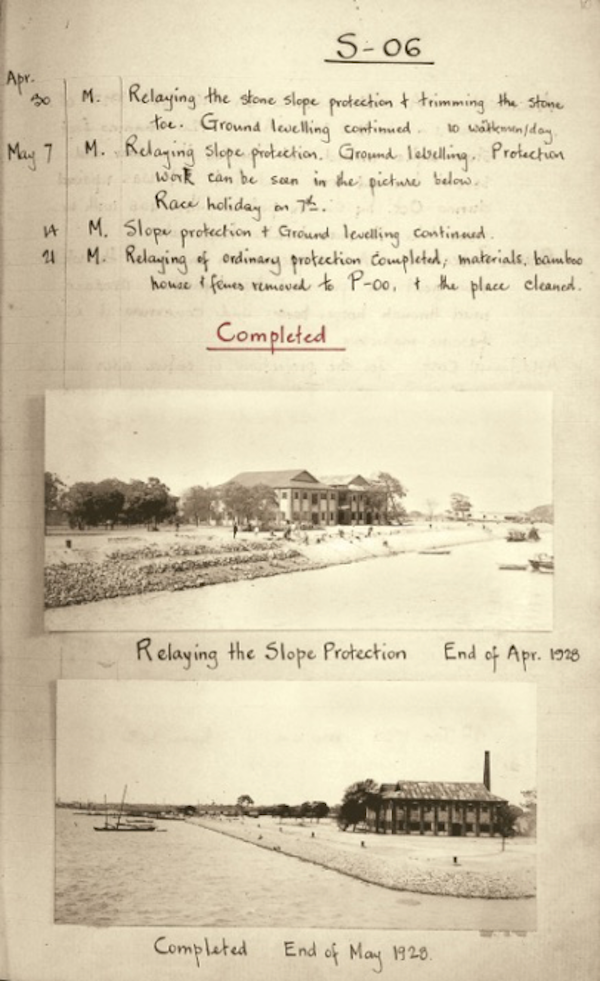 S-06
Apr.
30 M. Relaying the stone slope protection & trimming the stone
toe. Ground levelling continued. 10 watchmen/day
May 7 M. Relaying slope protection. Ground levelling. Protection
work can be seen in the picture below.
Race holiday on 7th.
14 M. Slope protection & Ground levelling continued.
21 M. Relaying of ordinary protection completed; materials, bamboo
house & removed to P-00, & the place cleaned.
Completed
Relaying the Slope Protection End of Apr. 1928
Completed End of May 1928.